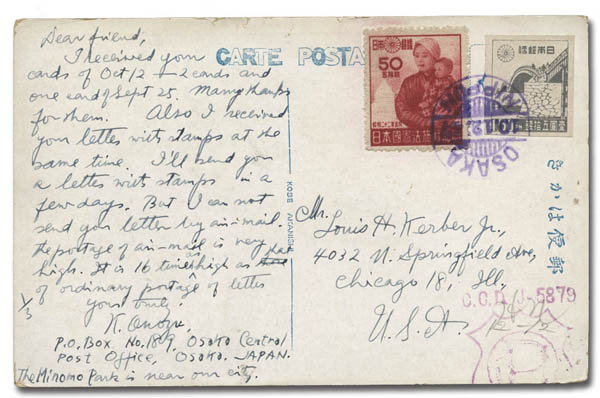 Dear friend,
I received your
cards of Oct 12 — 2 cards and
one card of Sept 25. Many thanks
for them. Also I received
your letter with stamps at the
same time. I'll send you
a letter with stamps in a
few days. But I can not
send you letter by air-mail.
the postage of air-mail is very
high. It is 16 times high as that
of ordinary postage of letter
Yours truly,
1/3
P.O. Box No. 189, Osaka Central
Post Office, Osaka, JAPAN.
The Minomo Park is near our city.
CARTE POSTA
KOBE
日本郵便
50
五拾銭
日本國憲法施行
日本郵便
壹圓五拾銭
OSAKA
NIPPON
きかは便郵
Mr. Louis H. Kerber Jr.,
4032 N. Springfield Ave,
Chicago 18, Ill.,
U.S.A.
C.C.D. J-5879